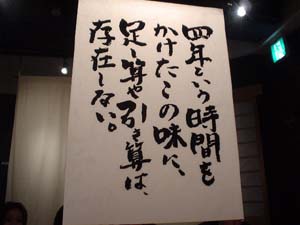 四年という時間を
かけたこの味に、
足し算や引き算は、
存在しない。